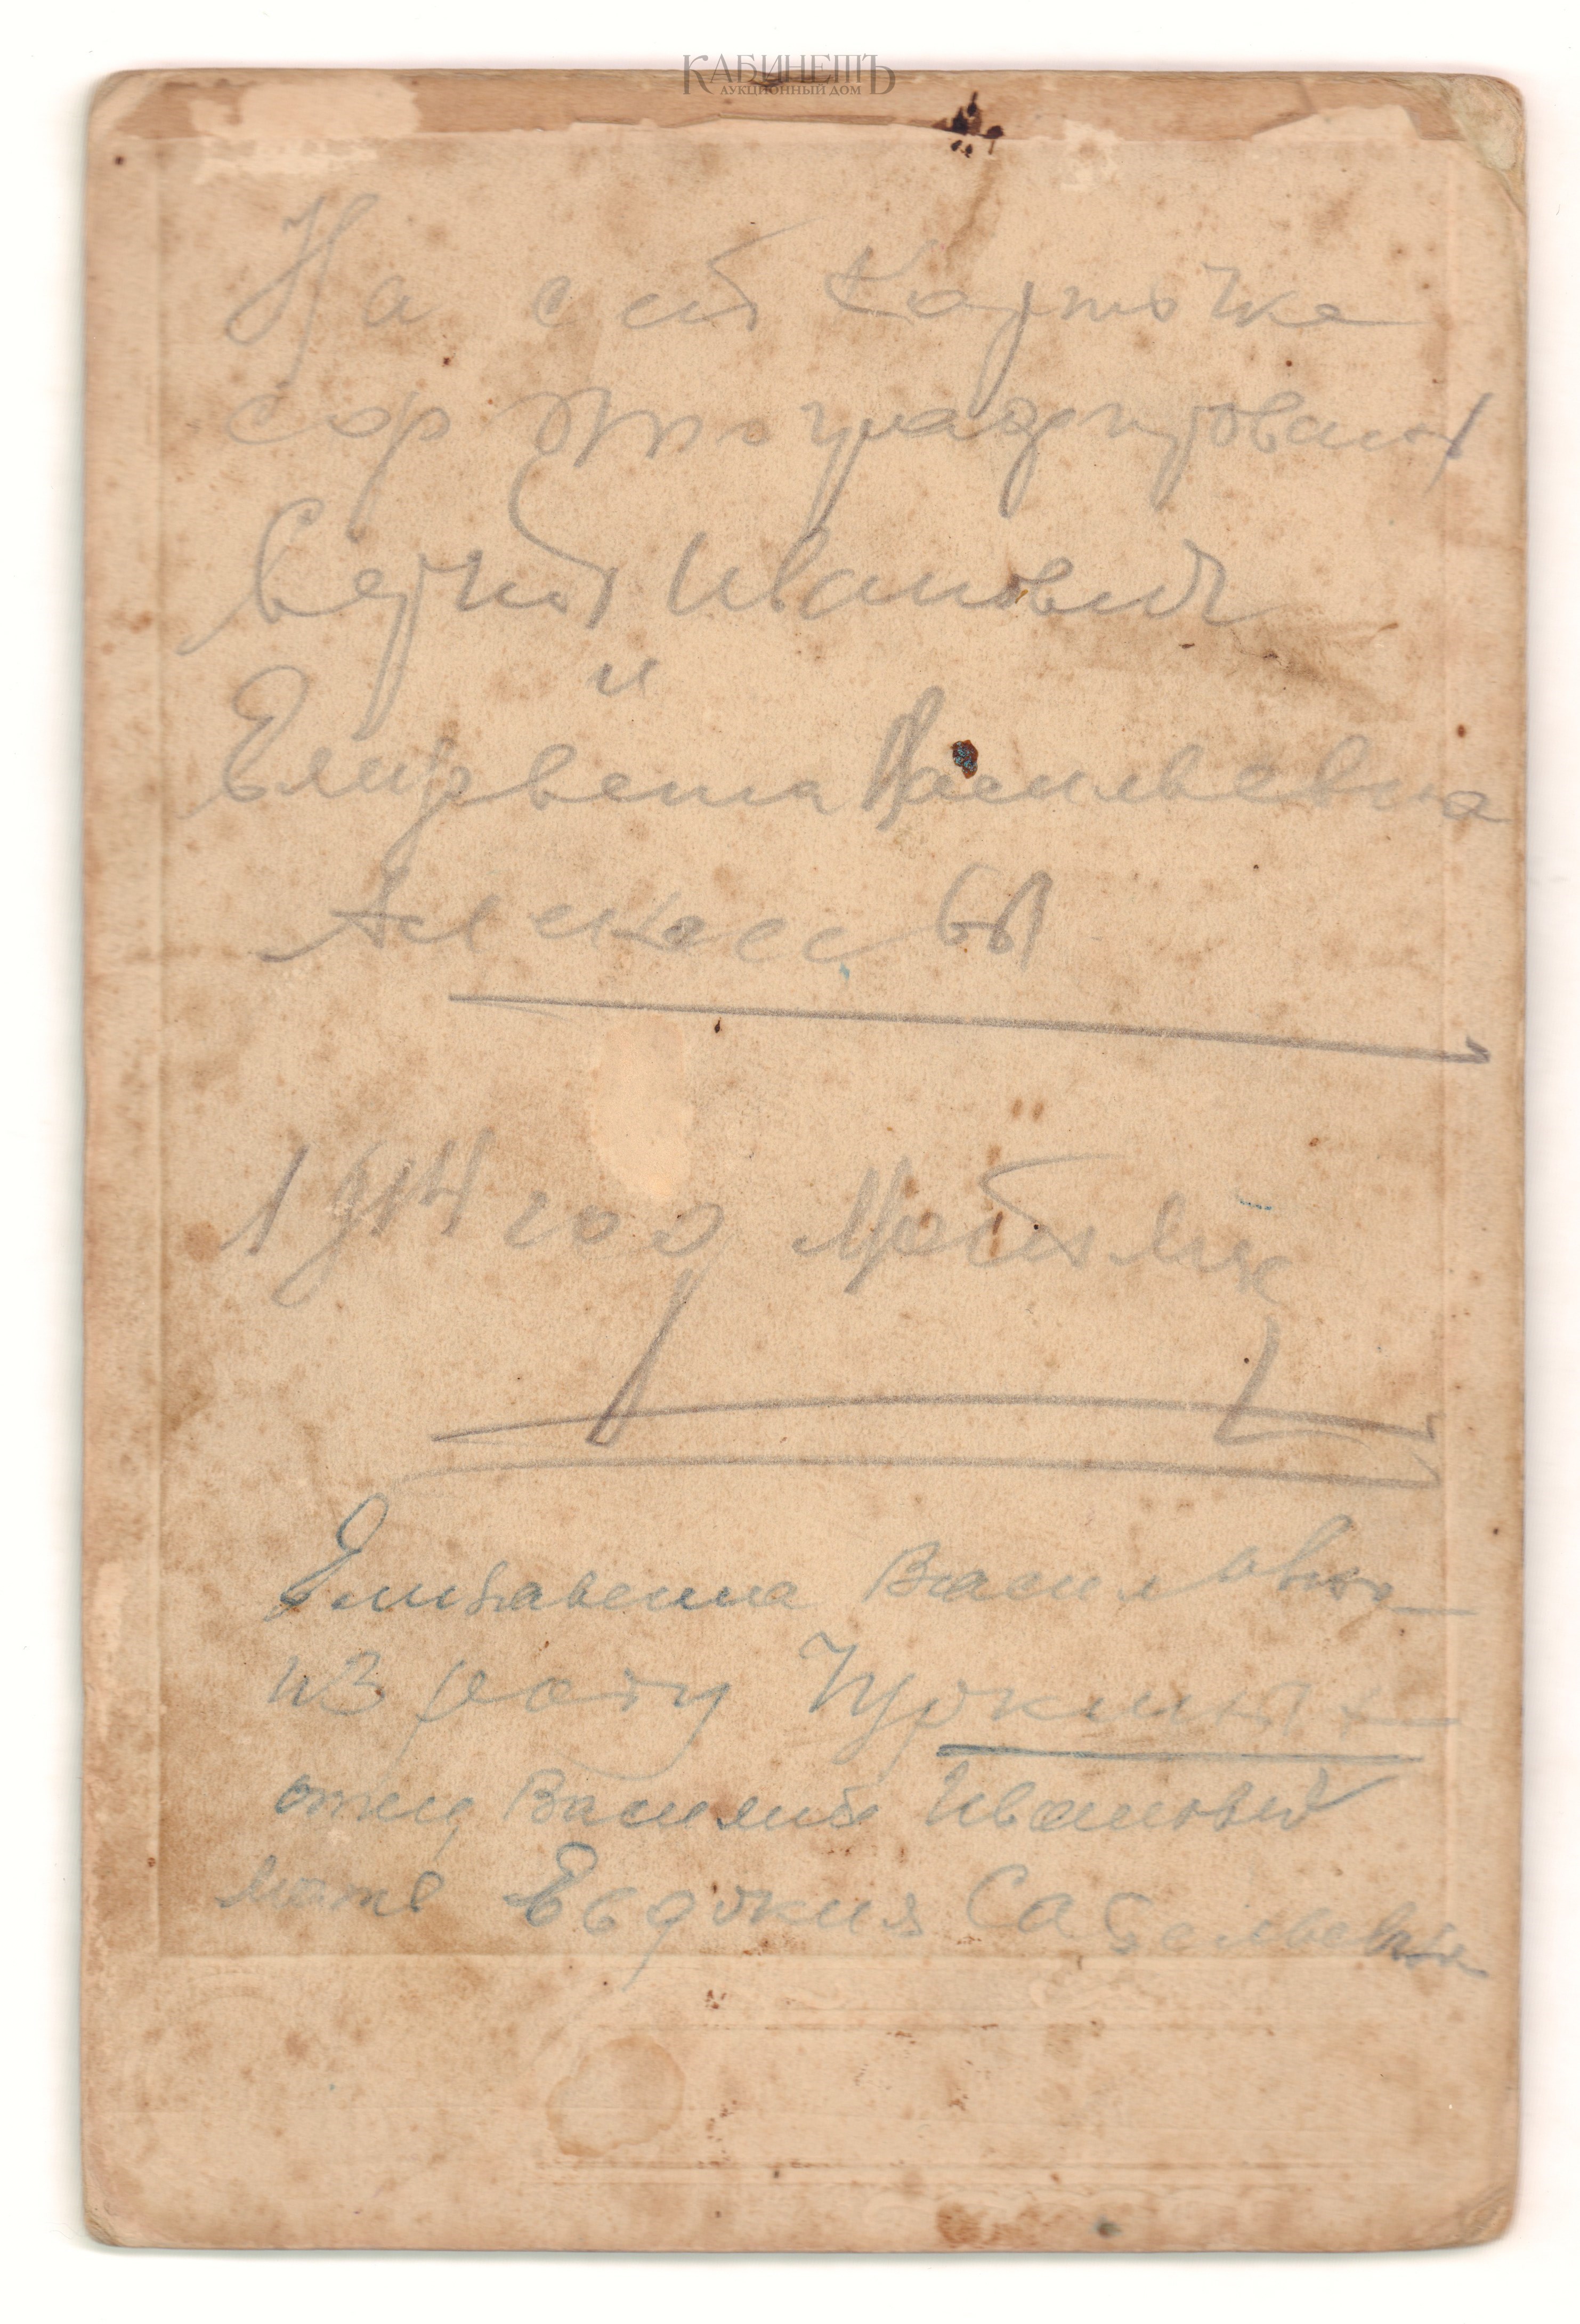 КАБИНЕТЪ
АУКЦИОННЫЙ ДОМ
На сей карточке
сфотографирован
Сергей Иванович
и
Елизвета Васильевна
1914 год
Елизавета Василовна
из роду Чуркиных
отец Василий Иванович
мать Евдокия Савельевна